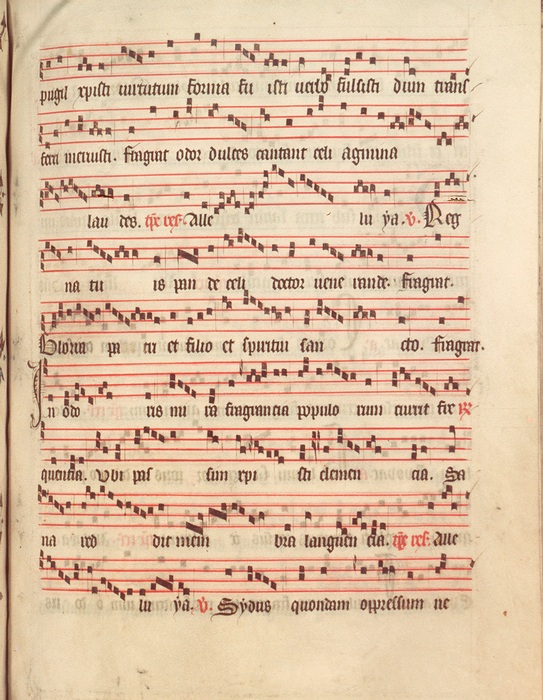 pugil xpisti virtutum forma fu isti uerbo fulsisti dum trans
ferri meruisti. Fragrat odor dulces cantant celi agmina
lau des. Alle lu ya. v. Reg
na tu is pan de celi doctor uene rande. Fragrat.
Gloria pa tri et filio et spiritui san cto. Fragrat.
In odo ris mi ra fragrancia populo rum currit fre
quencia. Vbi pas sum xpi sti clemen cia. Sa
na red dit mem bra languen cia. Alle
lu ya. v. Sydus quondam oppressum ne